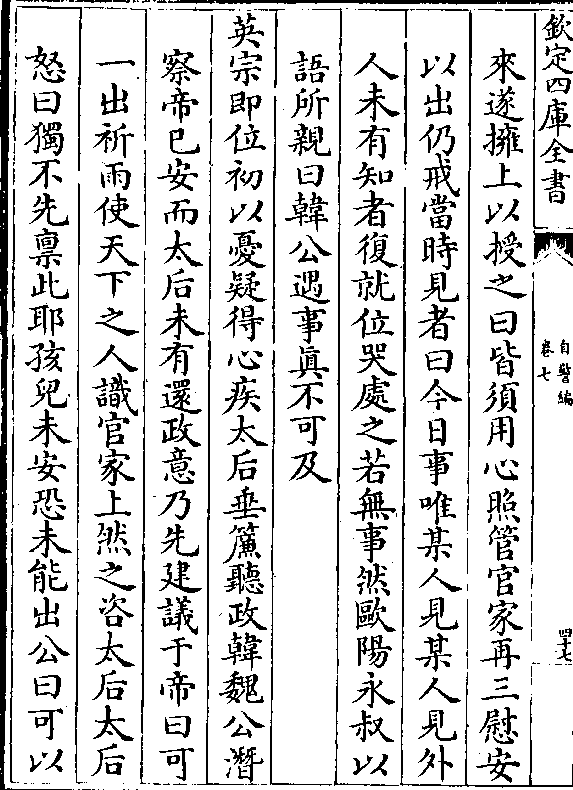 欽定四庫全書
自警編
卷七
四十七
來遂擁上以授之曰皆須用心照管官家再三慰安
以出仍戒當時見者曰今日事唯某人見某人見外
人未有知者復就位哭處之若無事然歐陽永叔以
語所親曰韓公遇事眞不可及
英宗即位初以憂疑得心疾太后垂簾聽政韓魏公潛
察帝已安而太后未有還政意乃先建議于帝曰可
一出祈雨使天下之人識官家上然之咨太后太后
怒曰獨不先禀此耶孩兒未安恐未能出公曰可以